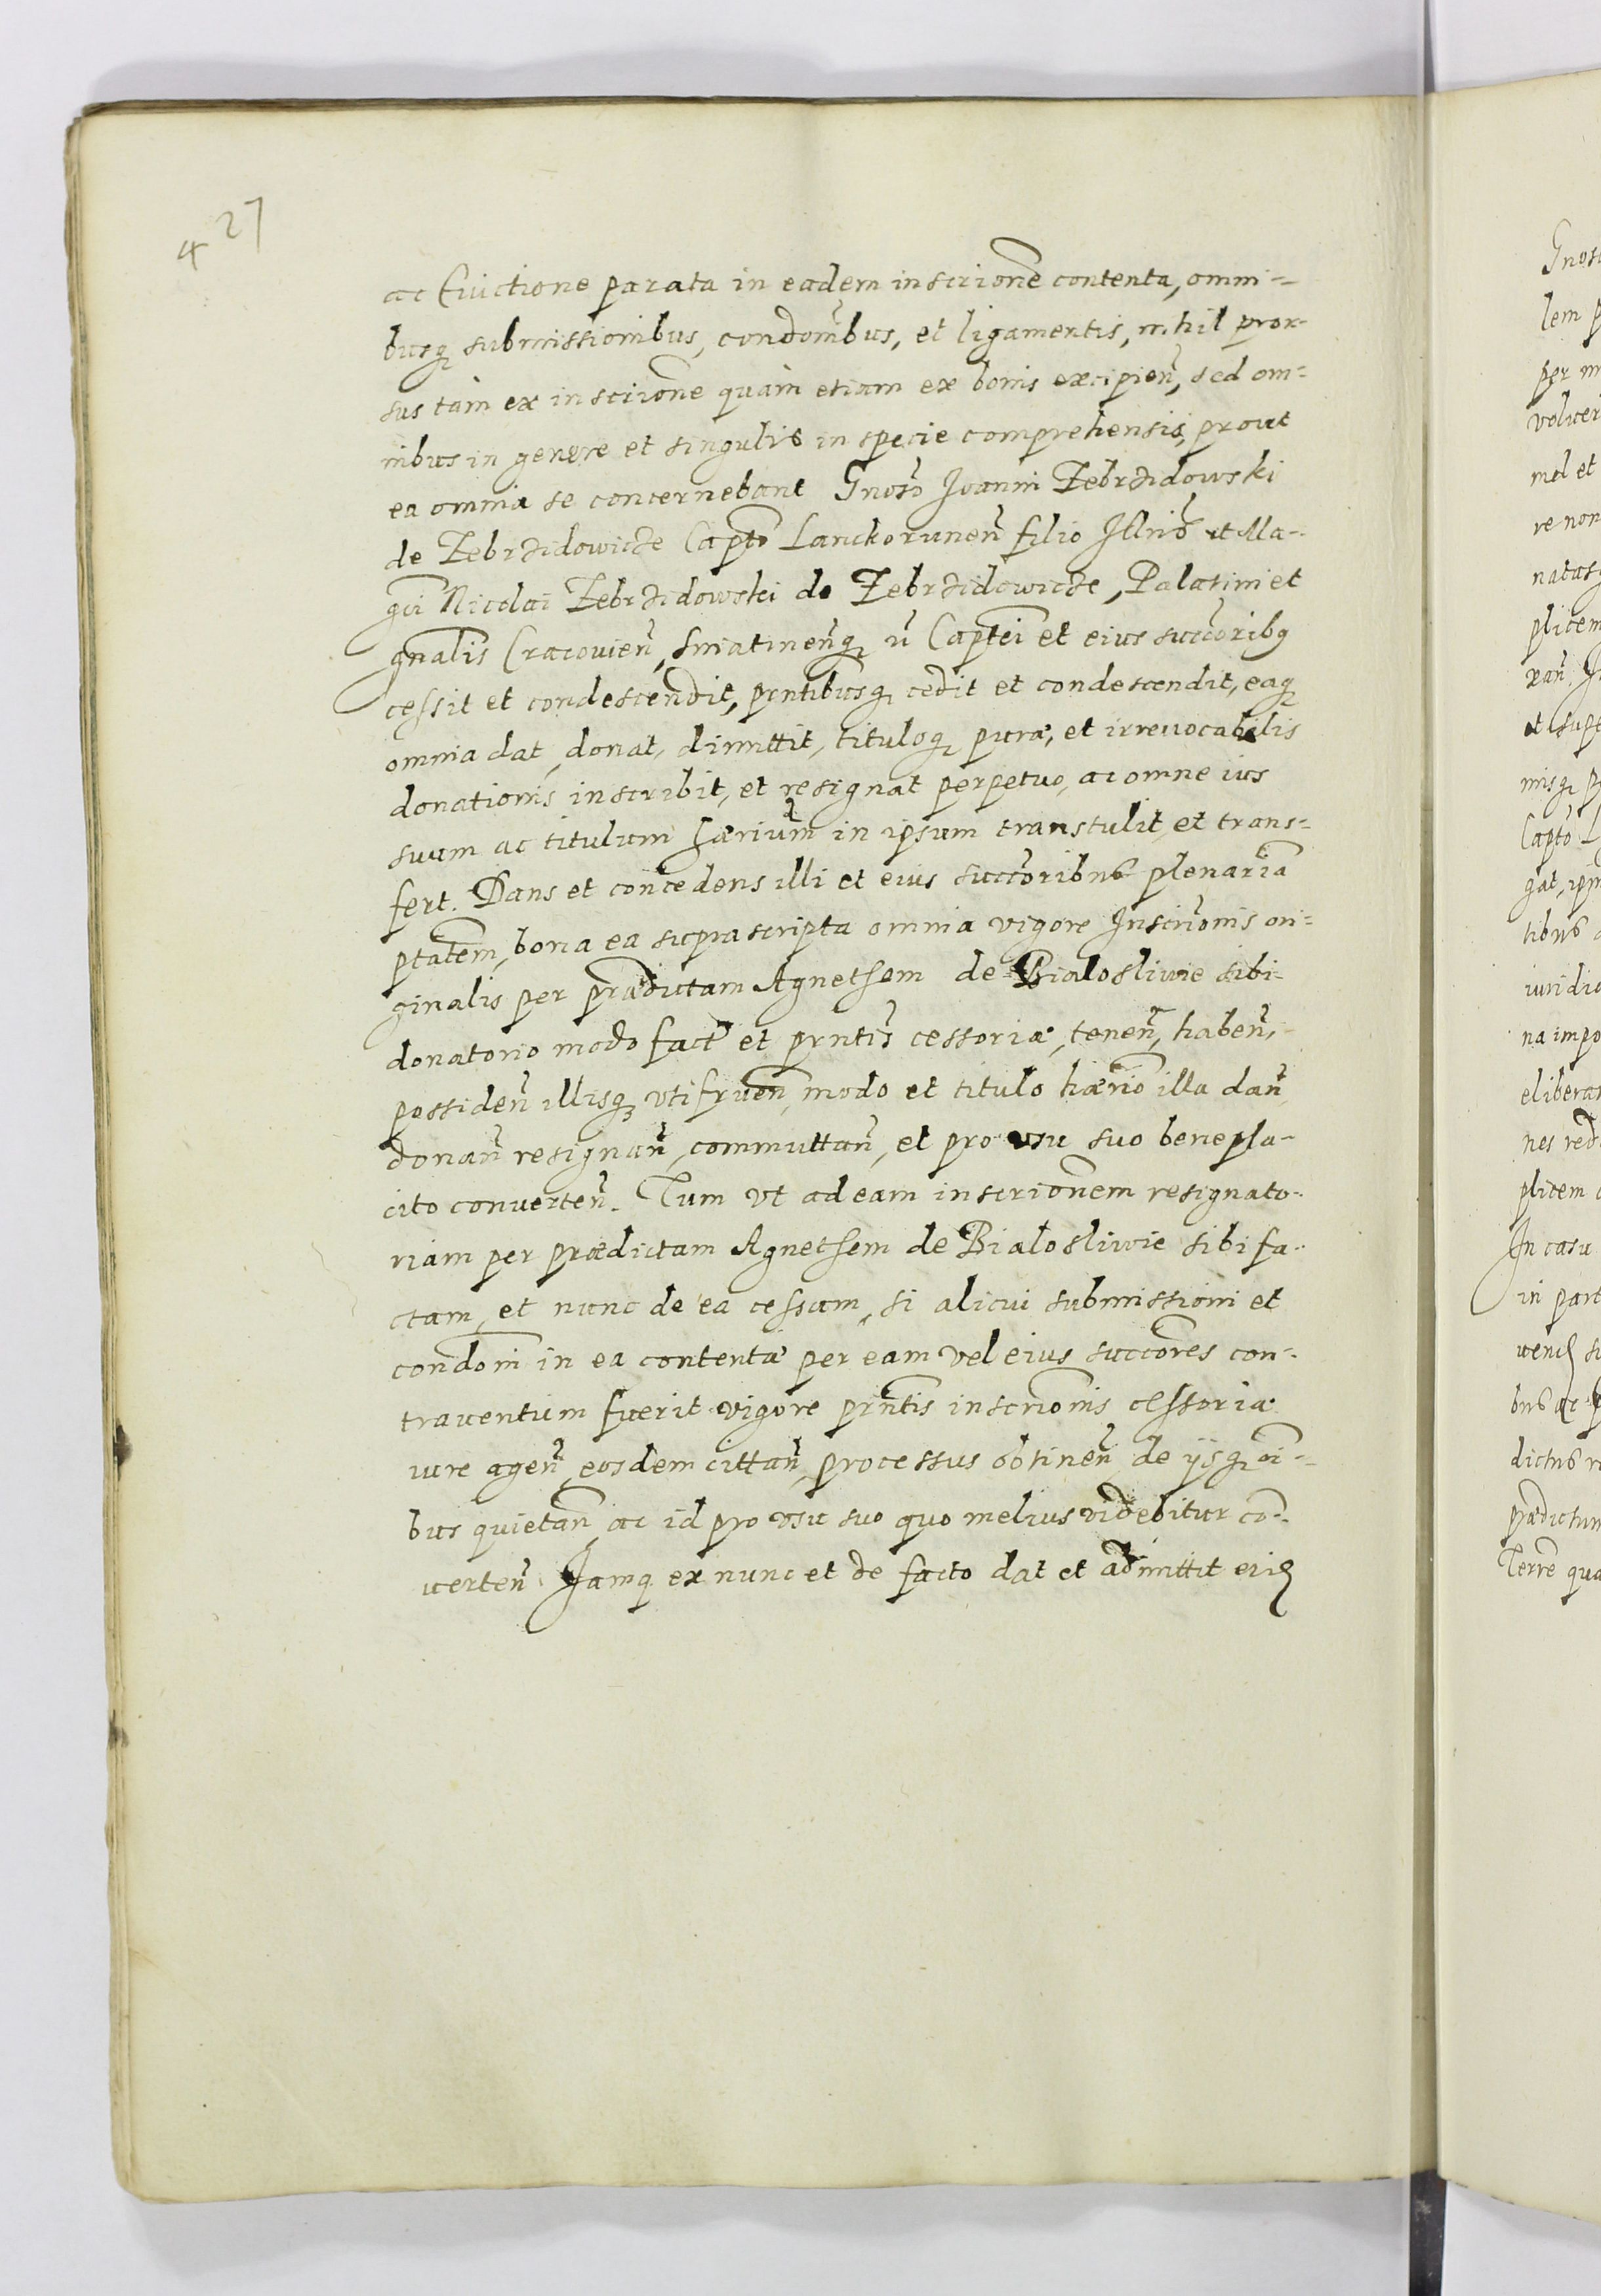 4 27
ac Euictione parata in eadem inscrione contenta, omni-
busq submissionibus, condonibus, et ligamentis, nihil pror-
sus tam ex inscrione quam etiam ex bonis excipien, sed om-
nibus in genere et singulis in specie comprehensis, prout
ea omnia se concernebant Gnoso Joanni Zebrzidowski
de Zebrzidowicze Capto Lanckorunen filio Illris et Ma-
gci Nicolai Zebrzidowski de Zebrzidowicze, Palatini et
gnalis Cracouien, Sniatinenq Captei et eius succoribq
cessit et condescendit, prntibusq cedit et condescendit, eaq
omnia dat, donat, dimittit, tituloq puræ, et irreuocabilis
donationis inscribit, et resignat perpetuo, ac omne ius
suum ac titulum hærium in ipsum transtulit, et trans-
fert. Dans et concedens illi et eius succoribus plenaria
ptatem, bona ea suprascripta omnia vigore Inscrionis ori-
ginalis per prædictam Agnetsem de Bialosliwie sibi
donatorio modo fact et prntis cessoriæ, tenen, haben,
possiden illisq vtifruen, modo et titulo hærio illa dan
donan resignan, commuttan, et pro vsu suo benepla-
cito conuerten. Tum vt ad eam inscrionem resignato-
riam per prædictam Agnetsem de Bialosliwie sibi fa-
ctam, et nunc de ea cessam, si alicui submissioni et
condoni in ea contentæ per eam vel eius succores con-
trauentum fuerit vigore prntis inscrionis cessoriæ
iure agen, eosdem cittan, processus obtinen, de ijsq oi-
bus quietan, ac id pro vsu suo quo melius videbitur co-
uerten. Jamq ex nunc et de facto dat et admittit